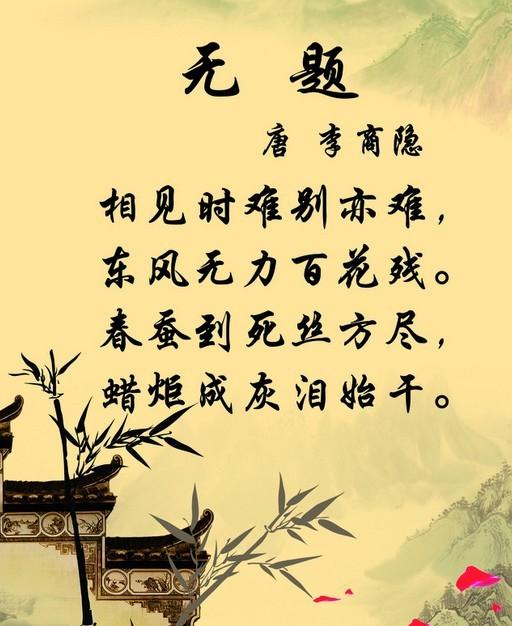 无 题
唐 李商隐
相见时难别亦难，
东风无力百花残。
春蚕到死丝方尽，
蜡炬成灰泪始干。